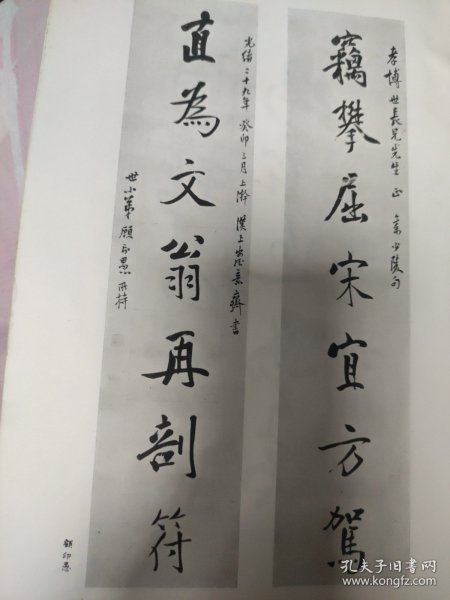 孝博世長兄先生正 集少陵句
竊攀屈宋宜方駕
光緒二十九年癸卯三月上澣漢上安忍齋書
直為文翁再剖符
世小弟顧印愚所持
顧印愚
孔夫子旧书网
www.kongfz.com